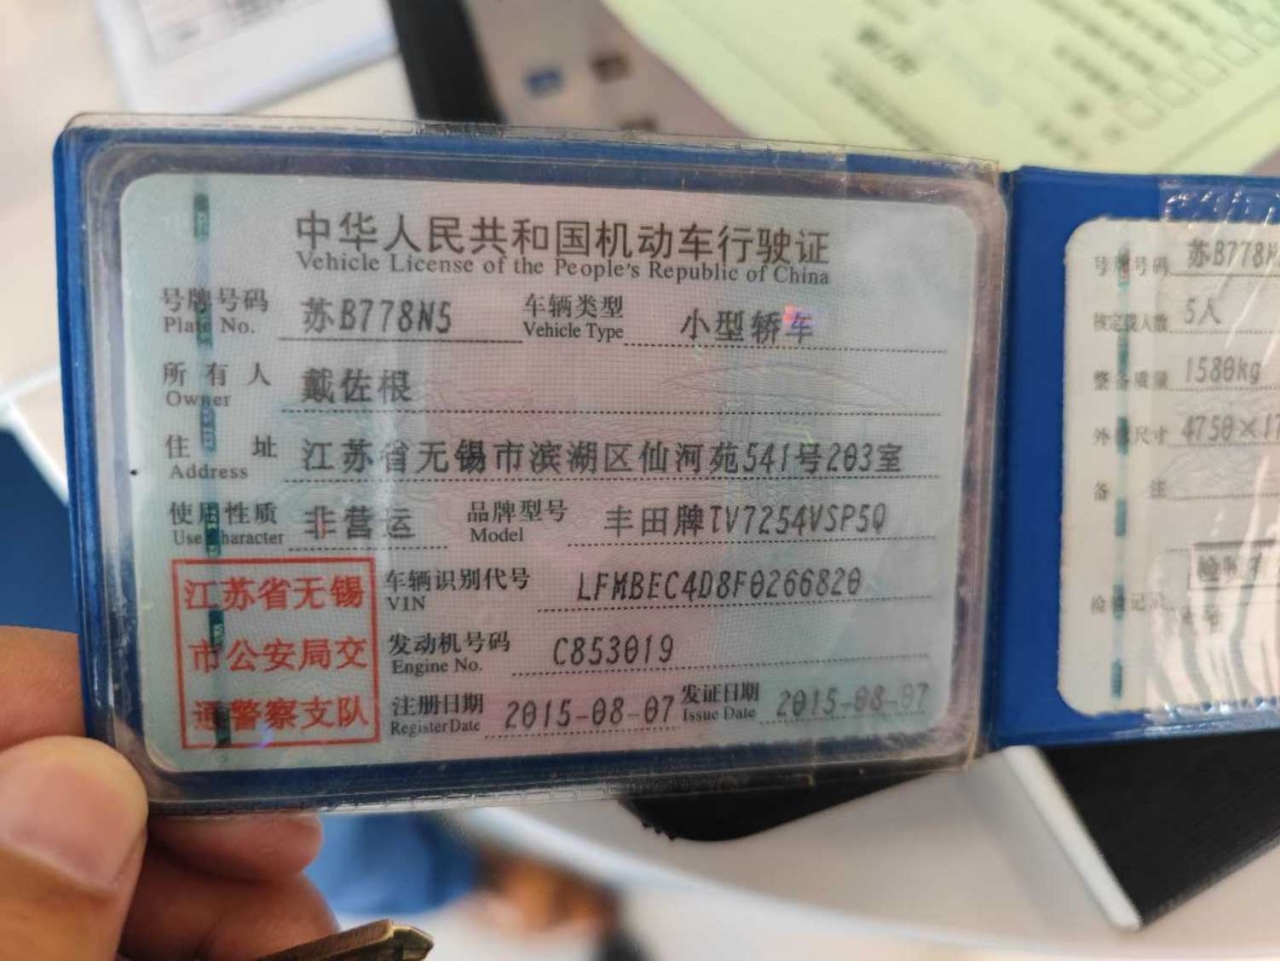 中华人民共和国机动车行驶证
Vehicle License of the People's Republic of China
号牌号码 苏B778N5 车辆类型 小型轿车
Plate No. Vehicle Type
所有人 戴佐根
Owner
住址 江苏省无锡市滨湖区仙河苑541号203室
Address
使用性质 非营运 品牌型号 丰田牌TV7254VSP5Q
Use Character Model
江苏省无锡
市公安局交
通警察支队
车辆识别代号 LFMBEC4D8F0266820
VIN
发动机号码 C853019
Engine No.
注册日期 2015-08-07 发证日期 2015-08-07
Register Date Issue Date
号牌号码 苏B778N
核定载人数 5人
整备质量 1580kg
外廓尺寸 4750×17
备注
检验记录